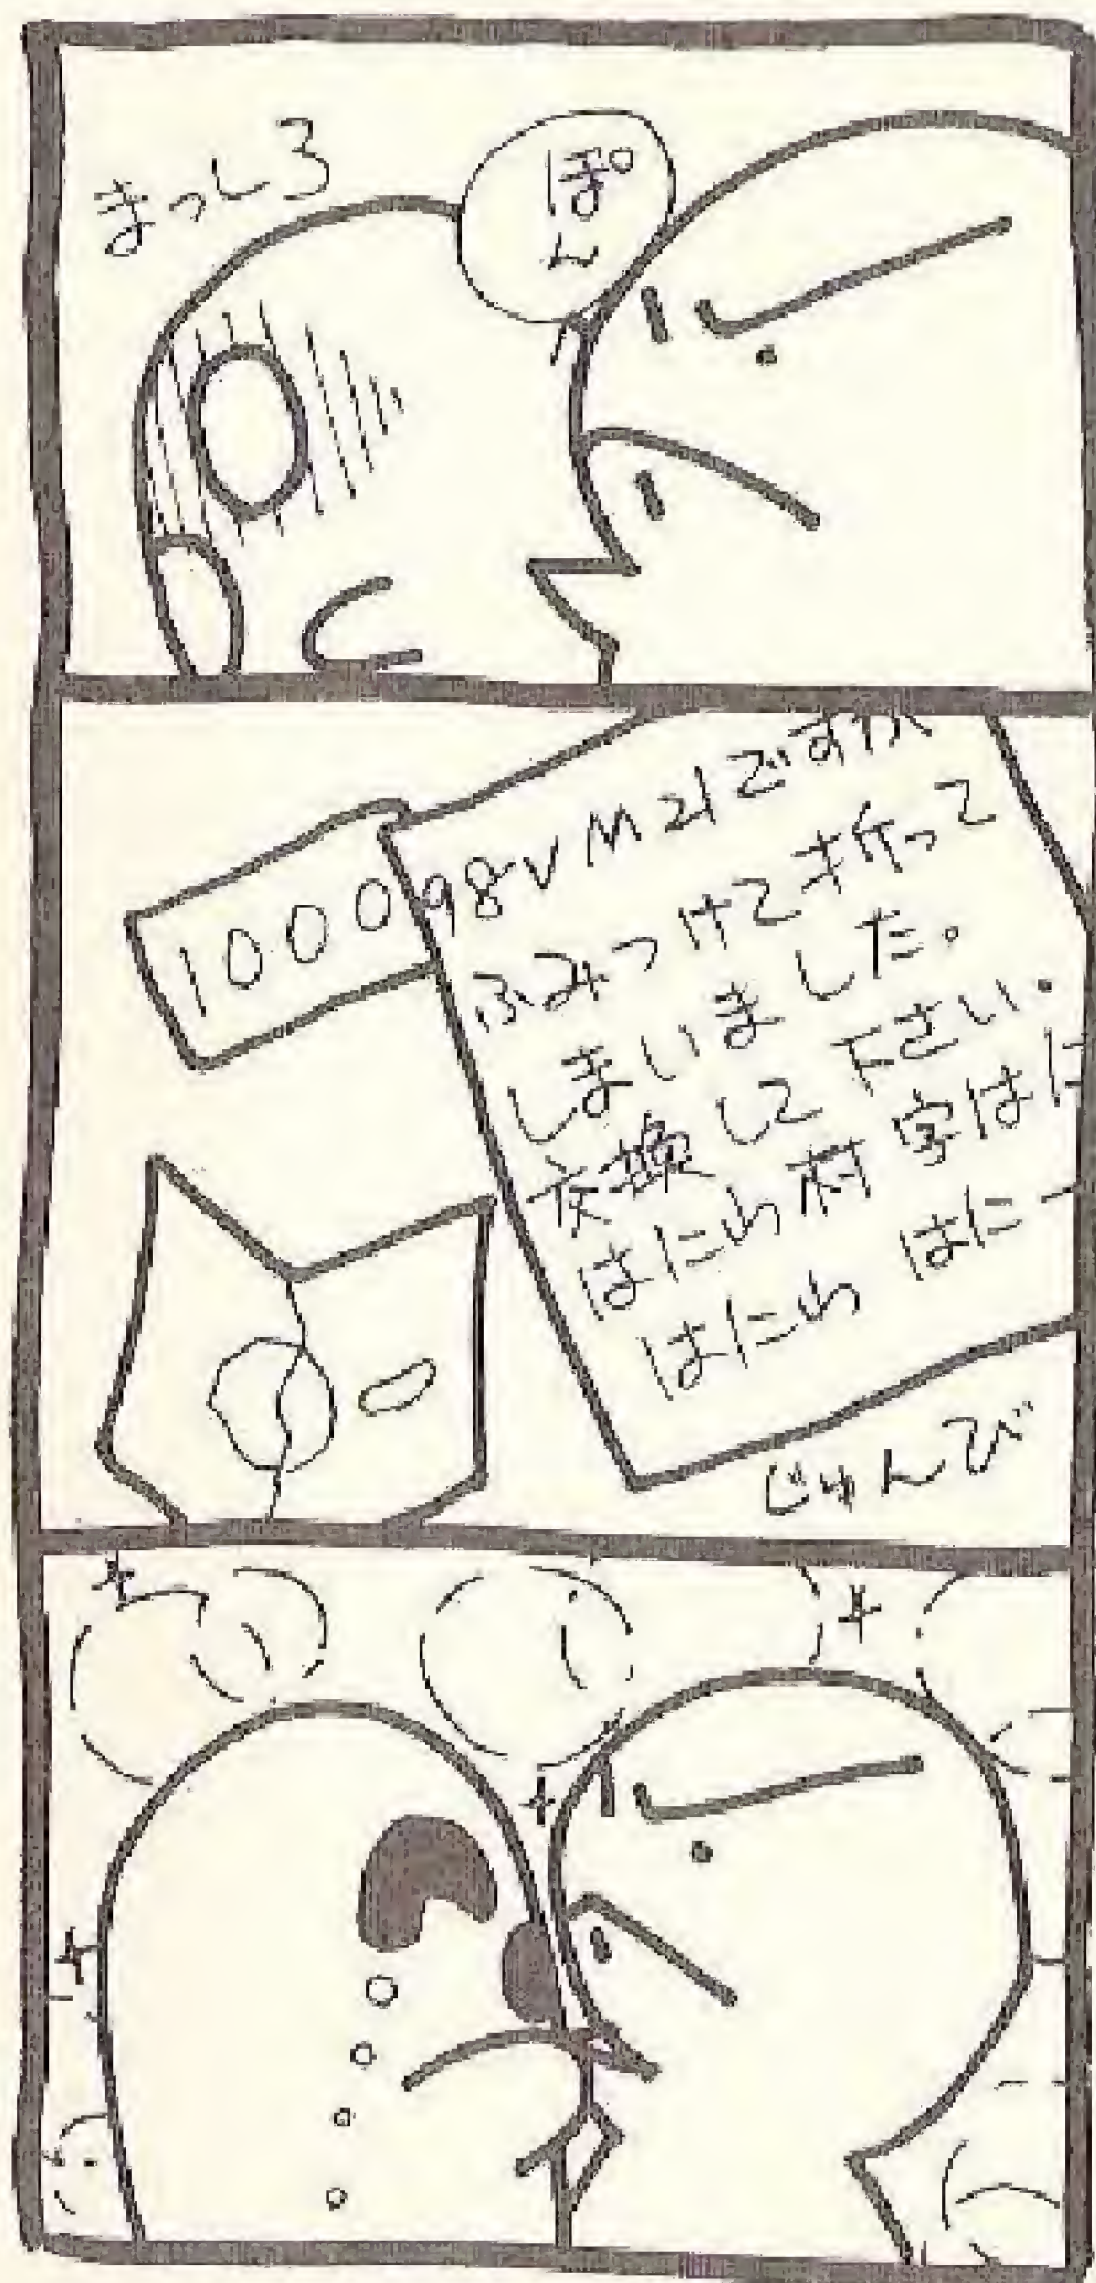 まっしろ
ぽん
1000
98VM21ですが
ふみつけて羊作って
しまいました。
交換して下さい。
はにわ村字はに
はにわ はに一
じゅんび